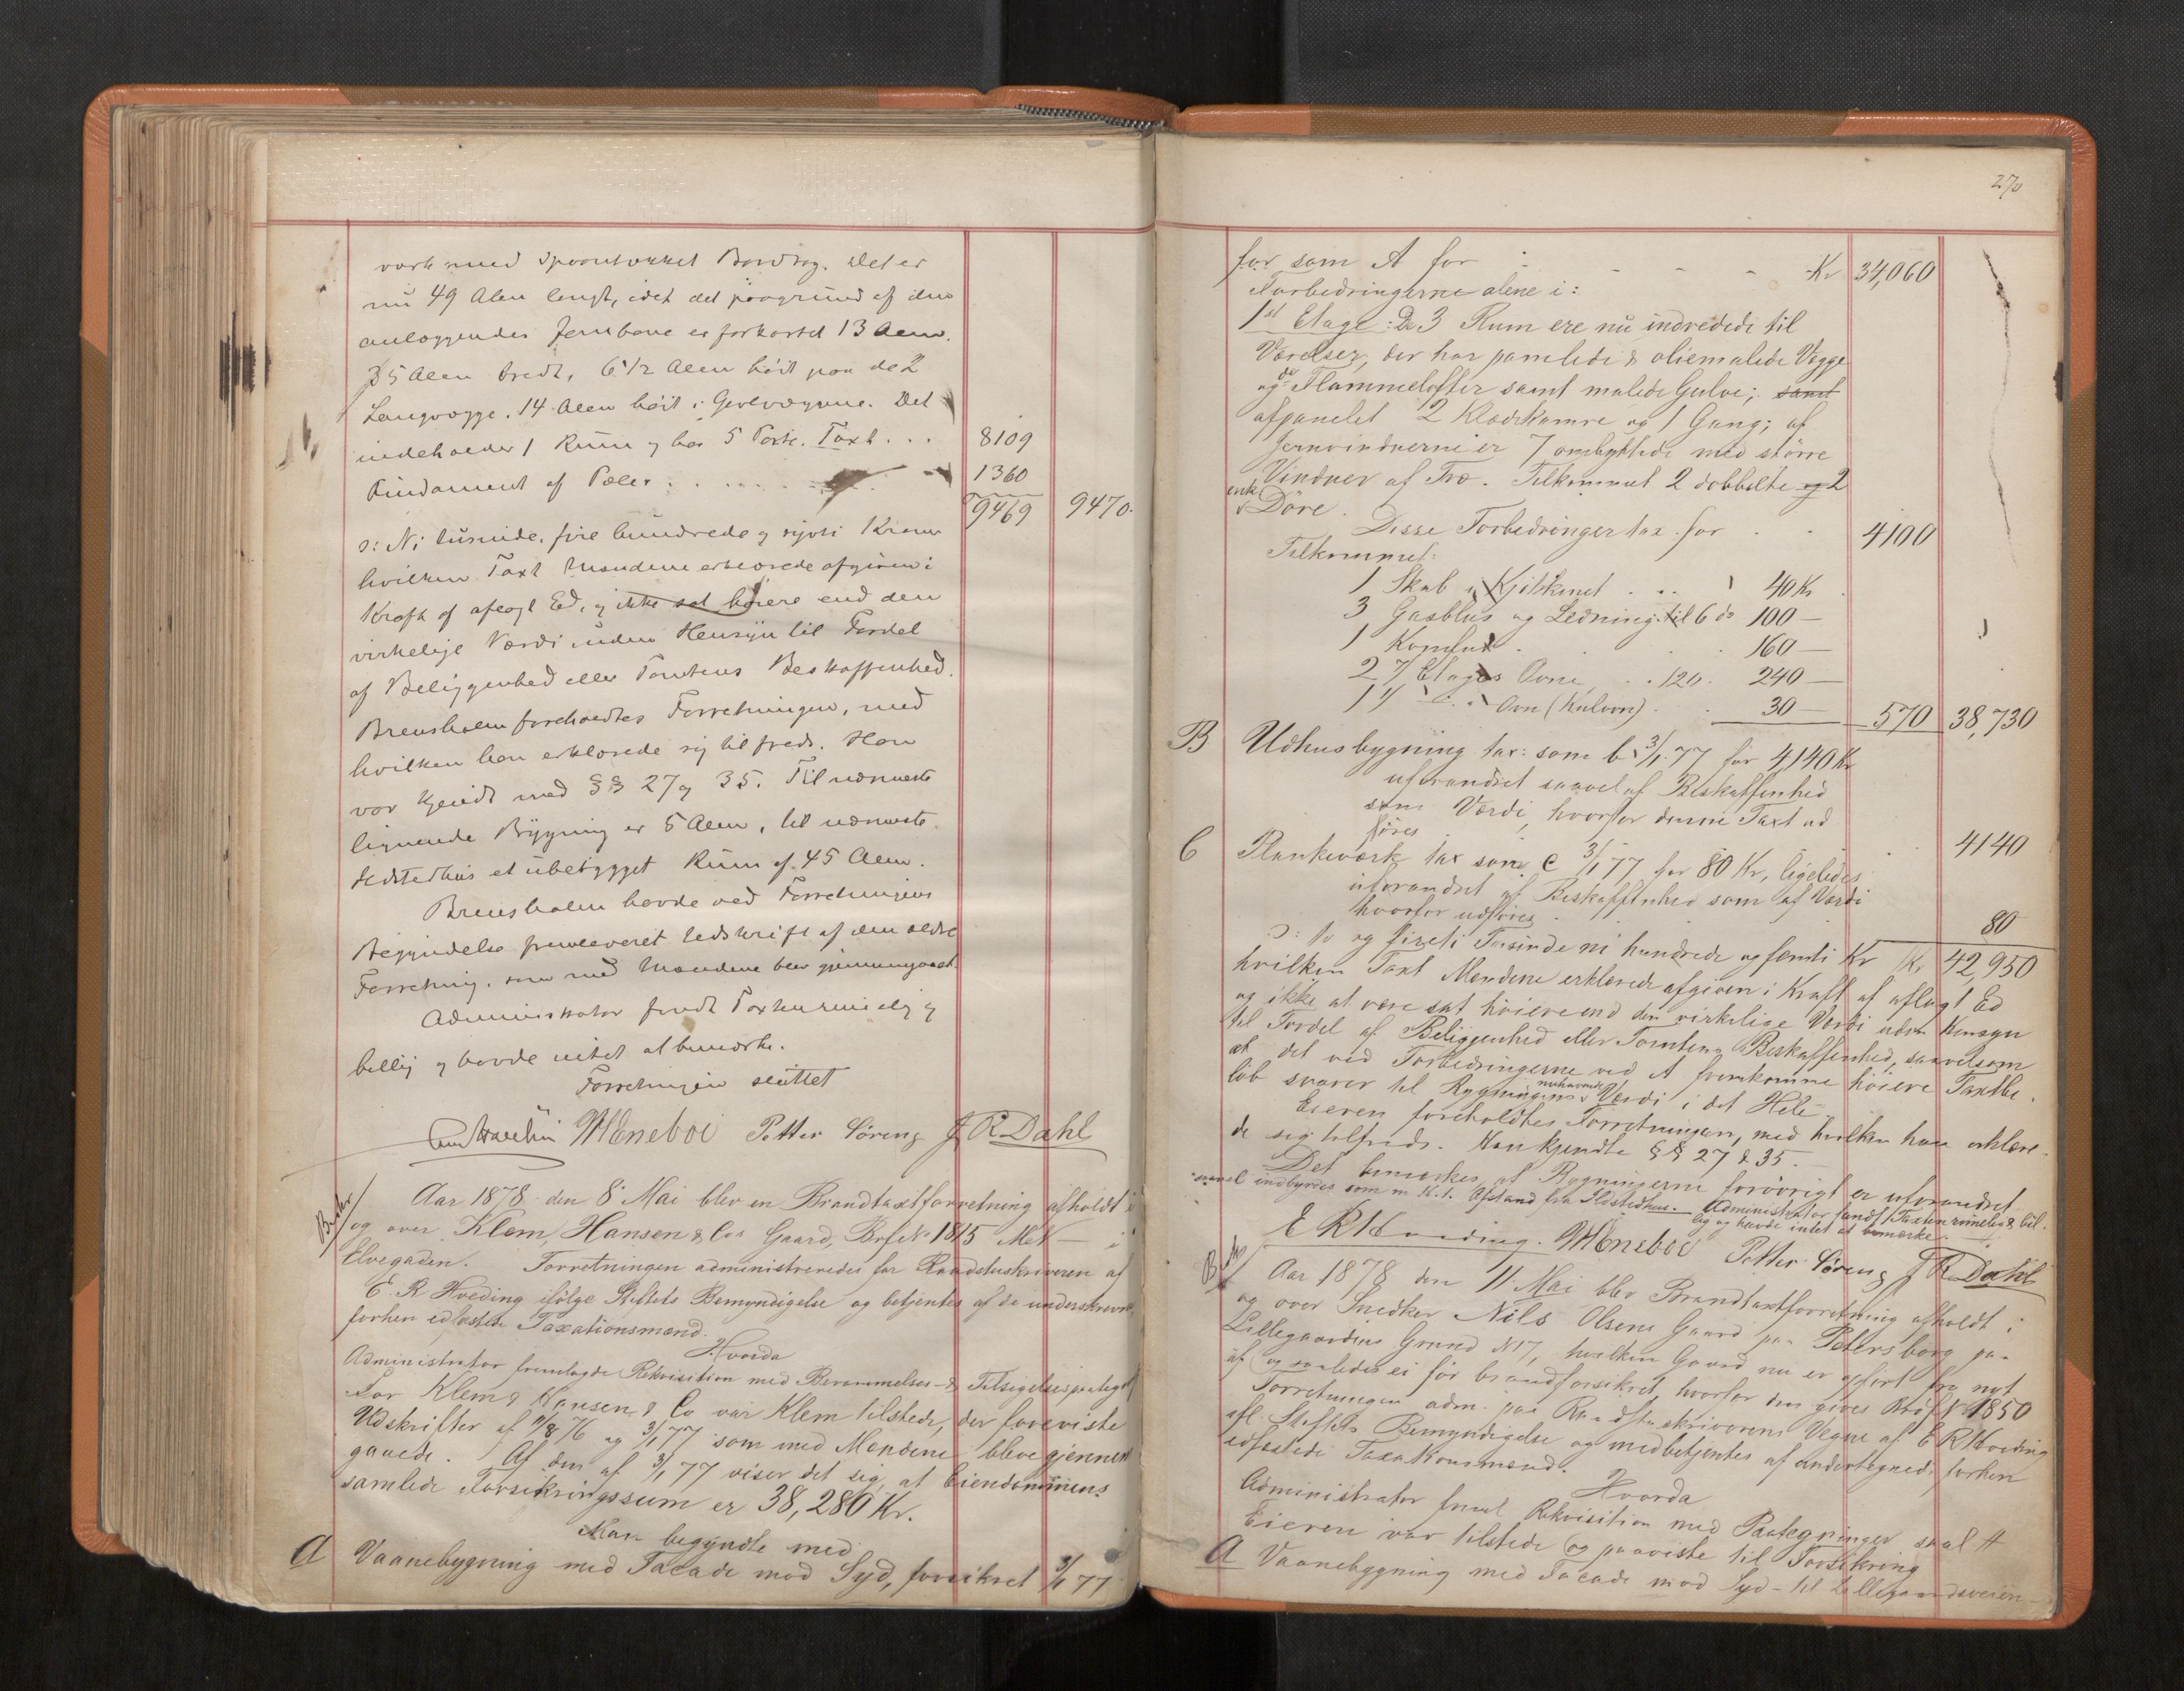 værk med Spoontækket Bordtag. Det er
nu 49 Alen langt, idet det paagrund af den
anlæggendes Jernbane er forkortet 13 Alen.
35 Alen bredt, 6 1/2 Alen höit paa de 2
Langvægge. 14 Alen höit i Gavlvæggene. Det
indeholder 1 Rum og har 5 Porte. Taxt . . . 8109
Fundament af Pæler . . . . . 1360
9469 9470.
ɔ: Ni tusinde, fire hundrede og sytti Kroner
hvilken Taxt Mændene erklærede afgiven i
Kraft af aflagt Ed, og ikke sat höiere end den
virkelige Værdi uden Hensyn til Fordel
af Beliggenhed eller Tomtens Beskaffenhed.
Brensholm foreholdtes Forretningen, med
hvilken han erklærede sig tilfreds. Han
var kjendt med §§ 27 og 35. Til nærmeste
lignende Bygning er 5 Alen, til nærmeste
Ildstedhus et ubebygget Rum af 45 Alen.
Brensholm havde ved Forretningens
Begyndelse fremleveret Udskrift af den ældre
Forretning, som med Mændene blev gjennemgaaet.
Administrator fandt Taxten rimelig og
billig og havde intet at bemærke.
Forretningen sluttet
WMeneboe Petter Söreng J R Dahl
Aar 1878 den 8de Mai blev en Brandtaxtforretning afholdt i
og over Klem, Hansen & Cos Gaard, Brf No 1815 MN — i
Elvegaden. Forretningen administreredes for Raadstuskriveren af
E. R Hveding ifölge Stiftets Bemyndigelse og betjentes af de underskrevne
forhen edfæstede Taxationsmænd.
Hvorda
Administrator fremlagde Rekvisition med Berammelses- & Tilsigelsespaategn
For Klem, Hansen & Co var Klem tilstede, der foreviste
Udskrifter af 11/8 76 og 3/1 77 som med Mændene bleve gjennem
gaaede. Af den af 3/1 77 viser det sig, at Eiendommens
samlede Forsikringssum er 38,280 Kr.
Man begyndte med
A Vaanebygning med Facade mod Syd, forsikret 3/1 77
270
for som A for - - - - Kr 34,060
Forbedringerne alene i:
1st Etage: De 3 Rum ere nu indredede til
Værelser, der har panelede & oliemalede Vægge
og do Flammelofter samt malede Gulve; samt
afpanelet 2 Klædkamre og 1 Gang; af
Jernvinduerne er 7 ombyttede med större
Vinduer af Træ. Tilkommet 2 dobbelte og 2
enk
Döre.
Disse Forbedringer tax. for . . 4100
Tilkommet:
1 Skab i Kjökkenet . . . 40 Kr
3 Gasblus og Ledning til 6 do 100 —
1 Komfur . . . 160 —
2 7 Etages Ovne . . 120. 240 —
1 Ovn (Kulovn) . . 30 — 570 38,730
B Udhusbygning tax: som b 3/1 77 for 4140 Kr
uforandret saavel af Beskaffenhed
som Værdi, hvorfor denne Taxt ud
föres . . 4140
C Plankeværk tax som c 3/1 77 for 80 Kr, ligeledes
uforandret af Beskaffenhed som af Værdi
hvorfor udföres . 80
ɔ: to og fireti Tusinde ni hundrede og femti Kr Kr 42,950
hvilken Taxt Mændene erklærede afgiven i Kraft af aflagt Ed
og ikke at være sat höiere end den virkelige Værdi uden Hensyn
til Fordel af Beliggenhed eller Tomtens Beskaffenhed, saavelsom
at det ved Forbedringerne ved A fremkomne höiere Taxtbe
löb svarer til Bygningens nuhavende Værdi i det Hele.
Eieren foreholdtes Forretningen, med hvilken han erklære
de sig tilfreds. Han kjendte §§ 27 & 35. —
Det bemærkes, at Bygningerne foröurigt er uforandret
saavel indbyrdes som m. H. t. Afstand fra Ildstedhus. — Administrator fandt Taxten rimelig & bil-
lig og havde intet at bemærke.
E R Hveding. WMeneboe Petter Söreng J R Dahl
Aar 1878 den 11 Mai blev Brandtaxtforretning afholdt i
og over Snedker Nils Olsens Gaard paa Petersborg paa
Lillegaardens Grund No 17, hvilken Gaard nu er opfört fra nyt
af og saaledes ei för brandforsikret, hvorfor den gives Brdf No 1850
Forretningen adm. paa Raadstuskriverens Vegne af E R Hveding
ifl. Stiftets Bemyndigelse og medbetjentes af undertegnede forhen
edfæstede Taxationsmænd.
Hvorda
Administrator freml Rekvisition med Paategninger saal #
Eieren var tilstede og paaviste til Forsikring
A Vaanebygning med Facade mod Syd - til Lillegaardsveien —